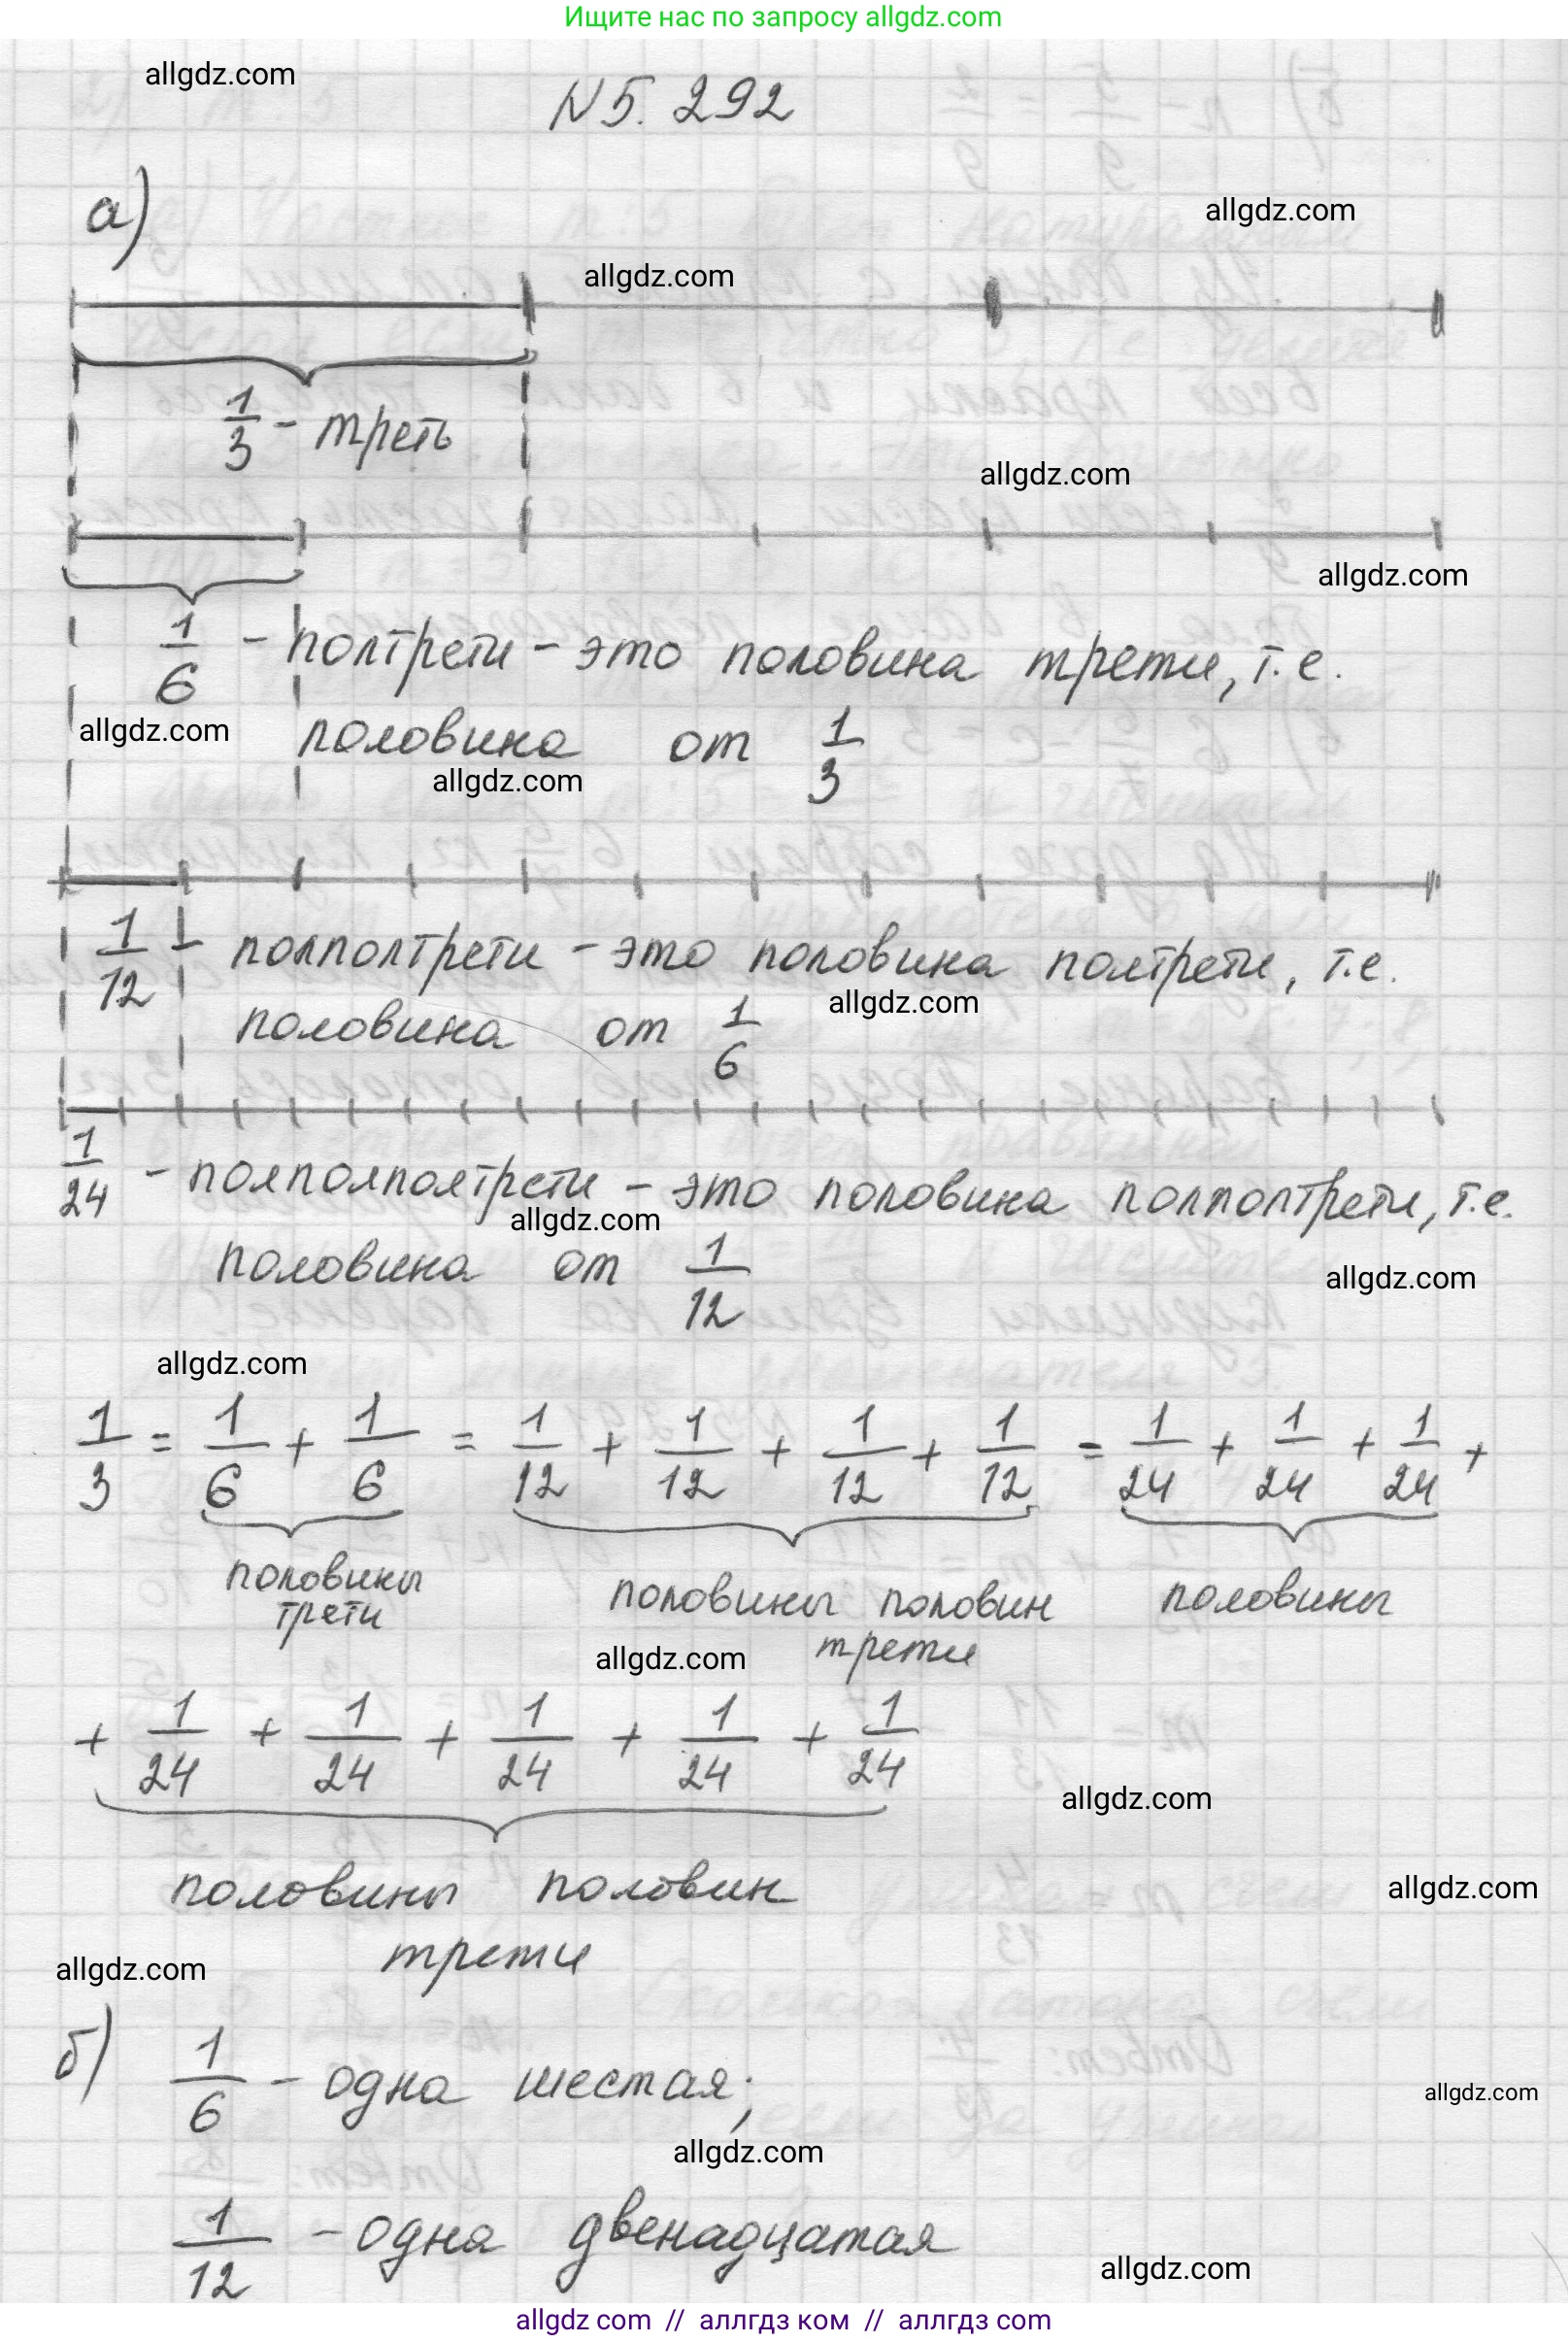 Ищите нас по запросу allgdz.com
allgdz.com
N 5. 292
а)
allgdz.com
allgdz.com
1/3 - треть
allgdz.com
allgdz.com
1/6 - полтрети - это половина трети, т.е.
allgdz.com
половина от 1/3
allgdz.com
1/12 - полполтрети - это половина полтрети, т.е.
allgdz.com
половина от 1/6
1/24 - полполполтрети - это половина полполтрети, т.е.
allgdz.com
половина от 1/12
allgdz.com
allgdz.com
1/3 = 1/6 + 1/6 = 1/12 + 1/12 + 1/12 + 1/12 = 1/24 + 1/24 + 1/24 +
половины трети
половины половин трети
половины
allgdz.com
+ 1/24 + 1/24 + 1/24 + 1/24 + 1/24
allgdz.com
половины половин
allgdz.com
трети
allgdz.com
б) 1/6 - одна шестая;
allgdz.com
allgdz.com
1/12 - одна двенадцатая
allgdz.com
allgdz com // аллгдз ком // аллгдз com